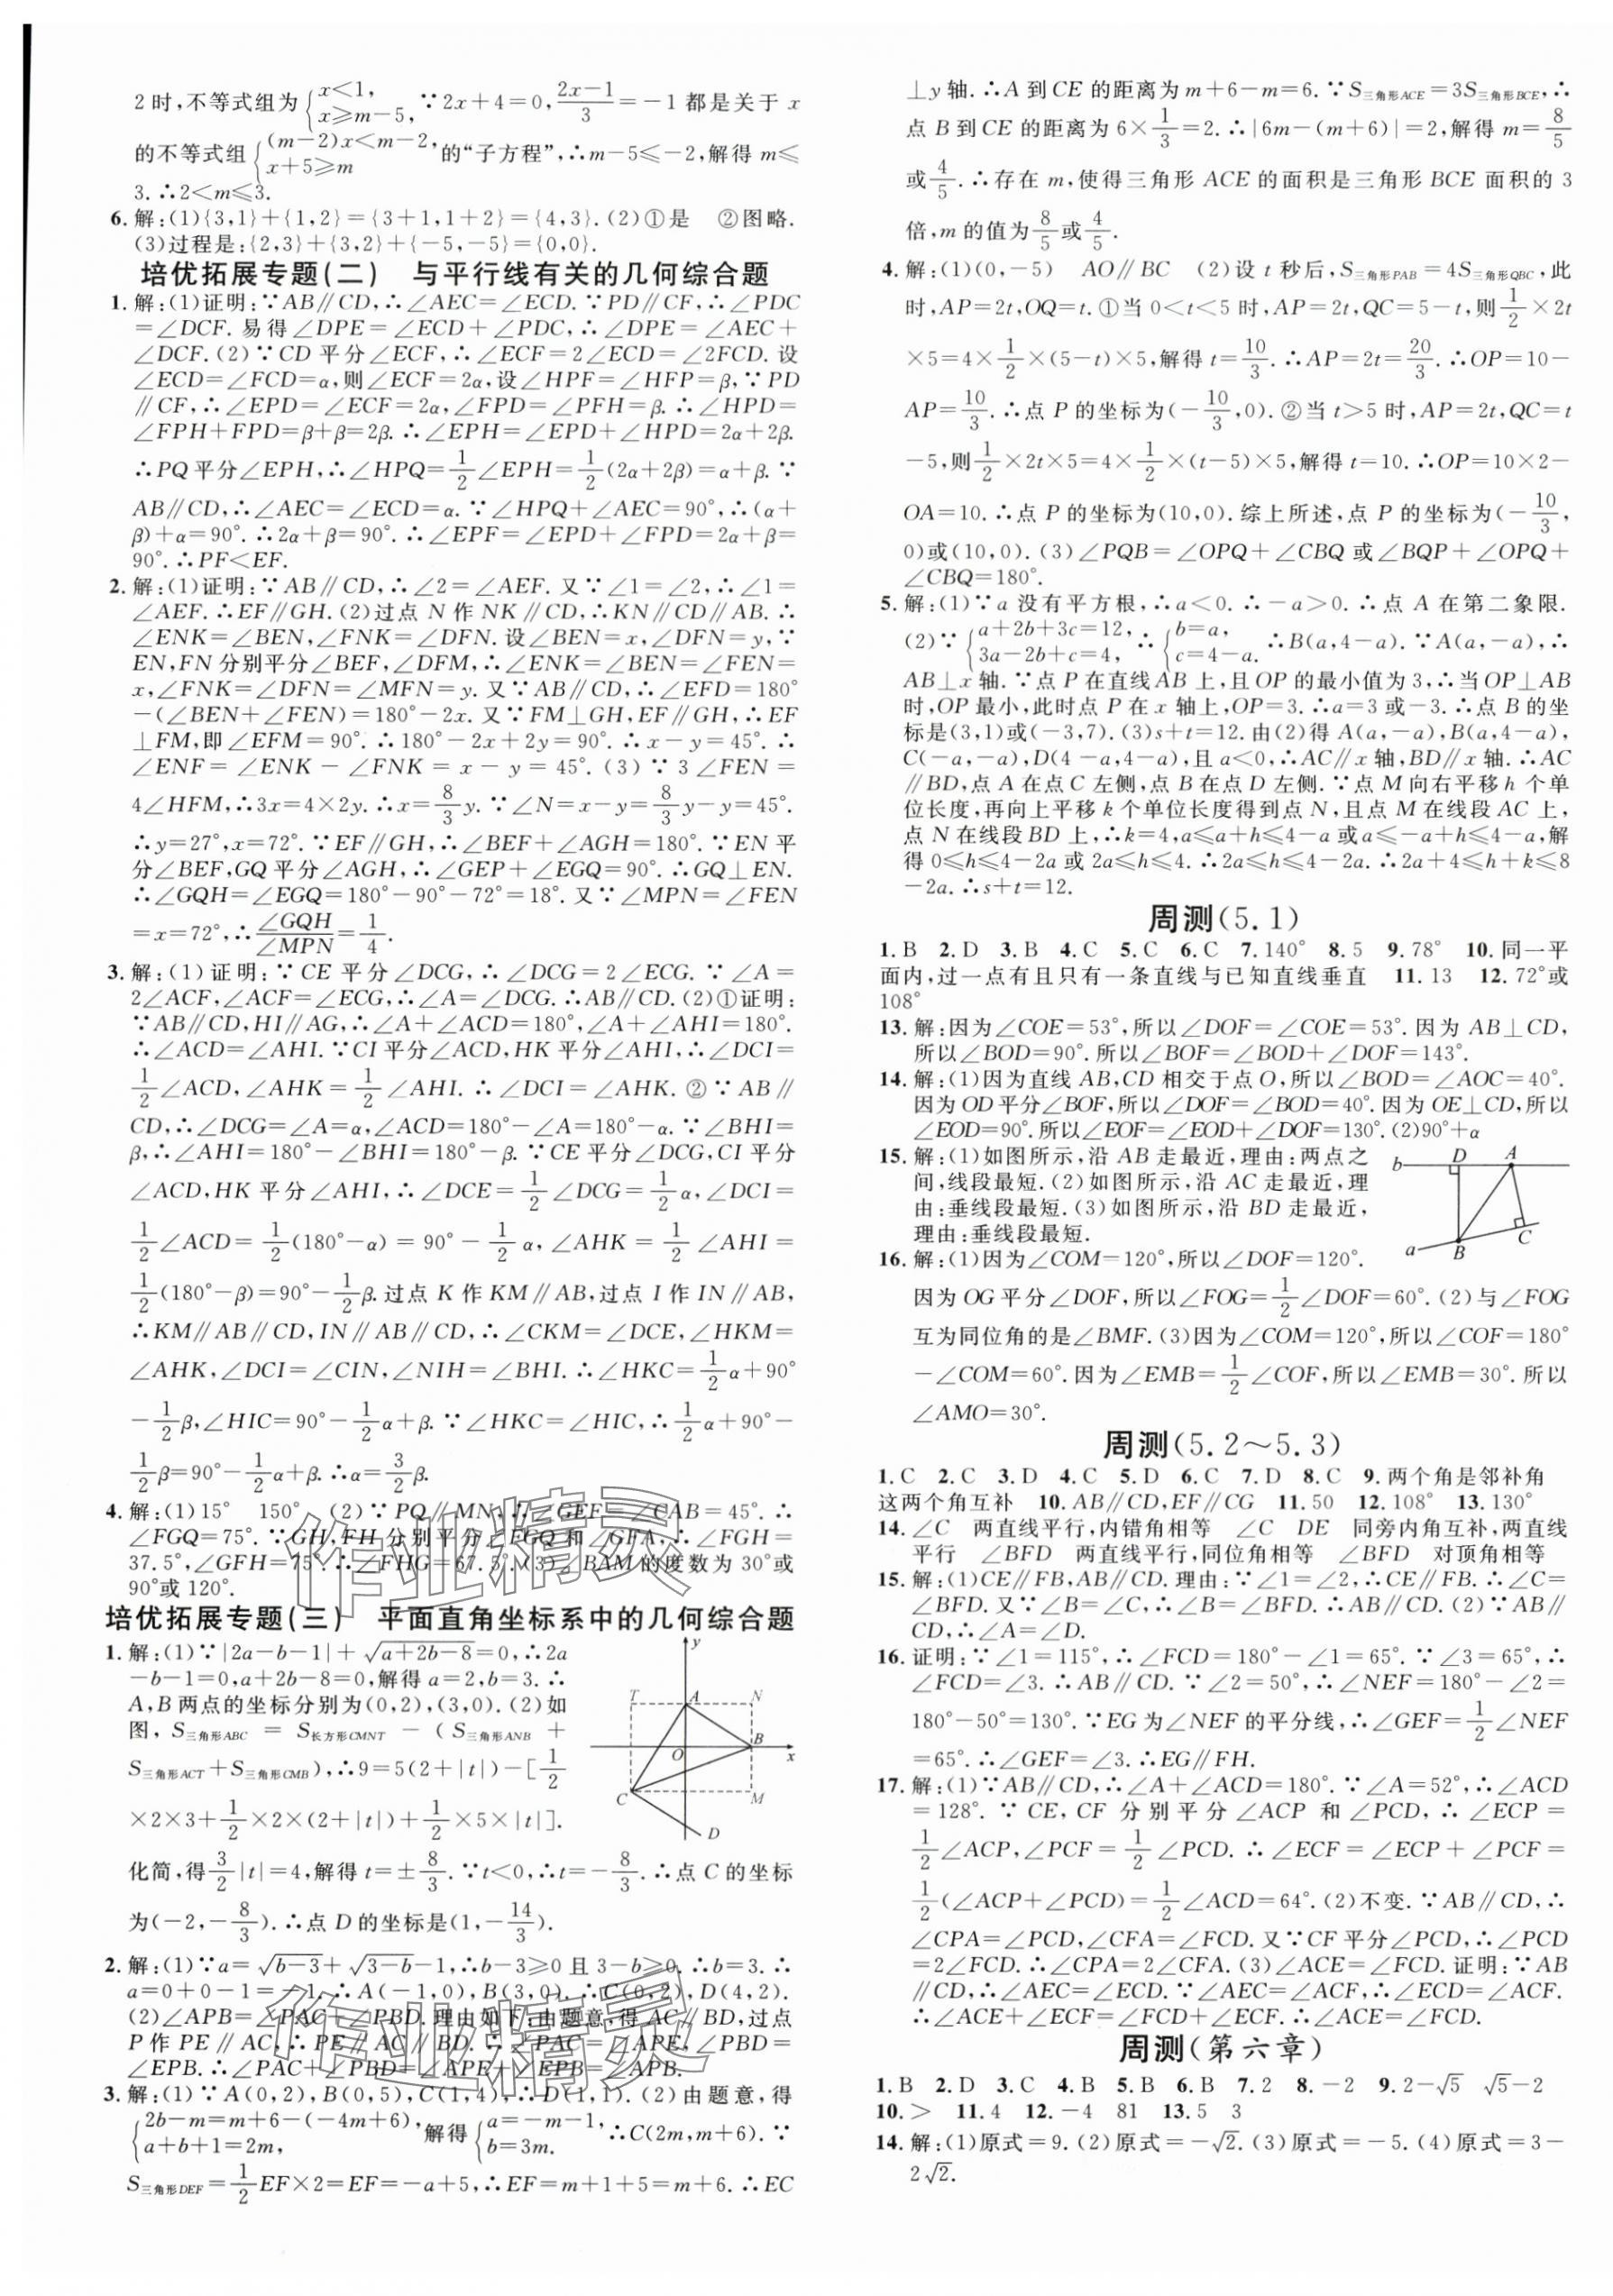 2时,不等式组为{x<1, x≥m-5, ∵2x+4=0,(2x-1)/3=-1都是关于x
的不等式组{(m-2)x<m-2, x+5≥m 的“子方程”,∴m-5≤-2,解得m≤
3.∴2<m≤3.
6.解:(1){3,1}+{1,2}={3+1,1+2}={4,3}.(2)①是 ②图略.
(3)过程是:{2,3}+{3,2}+{-5,-5}={0,0}.
培优拓展专题(二) 与平行线有关的几何综合题
1.解:(1)证明:∵AB∥CD,∴∠AEC=∠ECD.∵PD∥CF,∴∠PDC
=∠DCF.易得∠DPE=∠ECD+∠PDC,∴∠DPE=∠AEC+
∠DCF.(2)∵CD平分∠ECF,∴∠ECF=2∠ECD=∠2FCD.设
∠ECD=∠FCD=α,则∠ECF=2α,设∠HPF=∠HFP=β,∵PD
∥CF,∴∠EPD=∠ECF=2α,∠FPD=∠PFH=β.∴∠HPD=
∠FPH+FPD=β+β=2β.∴∠EPH=∠EPD+∠HPD=2α+2β.
∴PQ平分∠EPH,∴∠HPQ=1/2∠EPH=1/2(2α+2β)=α+β.∵
AB∥CD,∴∠AEC=∠ECD=α.∵∠HPQ+∠AEC=90°,∴(α+
β)+α=90°.∴2α+β=90°.∴∠EPF=∠EPD+∠FPD=2α+β=
90°.∴PF<EF.
2.解:(1)证明:∵AB∥CD,∴∠2=∠AEF.又∵∠1=∠2,∴∠1=
∠AEF.∴EF∥GH.(2)过点N作NK∥CD,∴KN∥CD∥AB.∴
∠ENK=∠BEN,∠FNK=∠DFN.设∠BEN=x,∠DFN=y,∵
EN,FN分别平分∠BEF,∠DFM,∴∠ENK=∠BEN=∠FEN=
x,∠FNK=∠DFN=∠MFN=y.又∵AB∥CD,∴∠EFD=180°
-(∠BEN+∠FEN)=180°-2x.又∵FM⊥GH,EF∥GH,∴EF
⊥FM,即∠EFM=90°.∴180°-2x+2y=90°.∴x-y=45°.∴
∠ENF=∠ENK-∠FNK=x-y=45°.(3)∵3∠FEN=
4∠HFM,∴3x=4×2y.∴x=8/3y.∵∠N=x-y=8/3y-y=45°.
∴y=27°,x=72°.∵EF∥GH,∴∠BEF+∠AGH=180°.∵EN平
分∠BEF,GQ平分∠AGH,∴∠GEP+∠EGQ=90°.∴GQ⊥EN.
∴∠GQH=∠EGQ=180°-90°-72°=18°.又∵∠MPN=∠FEN
=x=72°,∴∠GQH/∠MPN=1/4.
3.解:(1)证明:∵CE平分∠DCG,∴∠DCG=2∠ECG.∵∠A=
2∠ACF,∠ACF=∠ECG,∴∠A=∠DCG.∴AB∥CD.(2)①证明:
∵AB∥CD,HI∥AG,∴∠A+∠ACD=180°,∠A+∠AHI=180°.
∴∠ACD=∠AHI.∵CI平分∠ACD,HK平分∠AHI,∴∠DCI=
1/2∠ACD,∠AHK=1/2∠AHI.∴∠DCI=∠AHK.②∵AB∥
CD,∴∠DCG=∠A=α,∠ACD=180°-∠A=180°-α.∵∠BHI=
β,∴∠AHI=180°-∠BHI=180°-β.∵CE平分∠DCG,CI平分
∠ACD,HK平分∠AHI,∴∠DCE=1/2∠DCG=1/2α,∠DCI=
1/2∠ACD=1/2(180°-α)=90°-1/2α,∠AHK=1/2∠AHI=
1/2(180°-β)=90°-1/2β.过点K作KM∥AB,过点I作IN∥AB,
∴KM∥AB∥CD,IN∥AB∥CD,∴∠CKM=∠DCE,∠HKM=
∠AHK,∠DCI=∠CIN,∠NIH=∠BHI.∴∠HKC=1/2α+90°
-1/2β,∠HIC=90°-1/2α+β.∵∠HKC=∠HIC,∴1/2α+90°-
1/2β=90°-1/2α+β.∴α=3/2β.
4.解:(1)15° 150° (2)∵PQ∥MN,∴∠GEF=∠CAB=45°.∴
∠FGQ=75°.∵GH,FH分别平分∠EGQ和∠GFA,∴∠FGH=
37.5°,∠GFH=75°.∴∠FHG=67.5°.(3)∠BAM的度数为30°或
90°或120°.
培优拓展专题(三) 平面直角坐标系中的几何综合题
1.解:(1)∵|2a-b-1|+√(a+2b-8)=0,∴2a
-b-1=0,a+2b-8=0,解得a=2,b=3.∴
A,B两点的坐标分别为(0,2),(3,0).(2)如
图,S三角形ABC=S长方形CMNT-(S三角形ANB+
S三角形ACT+S三角形CMB),∴9=5(2+|t|)-[1/2
×2×3+1/2×2×(2+|t|)+1/2×5×|t|].
y
T A N
O B x
C M
D
化简,得3/2|t|=4,解得t=±8/3.∵t<0,∴t=-8/3.∴点C的坐标
为(-2,-8/3).∴点D的坐标是(1,-14/3).
2.解:(1)∵a=√(b-3)+√(3-b)-1,∴b-3≥0且3-b≥0.∴b=3.∴
a=0+0-1=-1.∴A(-1,0),B(3,0).∴C(0,2),D(4,2).
(2)∠APB=∠PAC+∠PBD.理由如下:由题意,得AC∥BD,过点
P作PE∥AC,∴PE∥AC∥BD.∴∠PAC=∠APE,∠PBD=
∠EPB.∴∠PAC+∠PBD=∠APE+∠EPB=∠APB.
3.解:(1)∵A(0,2),B(0,5),C(1,4),∴D(1,1).(2)由题意,得
{2b-m=m+6-(-4m+6), a+b+1=2m, 解得{a=-m-1, b=3m. ∴C(2m,m+6).∵
S三角形DEF=1/2EF×2=EF=-a+5,∴EF=m+1+5=m+6.∴EC
⊥y轴.∴A到CE的距离为m+6-m=6.∵S三角形ACE=3S三角形BCE,∴
点B到CE的距离为6×1/3=2.∴|6m-(m+6)|=2,解得m=8/5
或4/5.∴存在m,使得三角形ACE的面积是三角形BCE面积的3
倍,m的值为8/5或4/5.
4.解:(1)(0,-5) AO∥BC (2)设t秒后,S三角形PAB=4S三角形QBC,此
时,AP=2t,OQ=t.①当0<t<5时,AP=2t,QC=5-t,则1/2×2t
×5=4×1/2×(5-t)×5,解得t=10/3.∴AP=2t=20/3.∴OP=10-
AP=10/3.∴点P的坐标为(-10/3,0).②当t>5时,AP=2t,QC=t
-5,则1/2×2t×5=4×1/2×(t-5)×5,解得t=10.∴OP=10×2-
OA=10.∴点P的坐标为(10,0).综上所述,点P的坐标为(-10/3,
0)或(10,0).(3)∠PQB=∠OPQ+∠CBQ或∠BQP+∠OPQ+
∠CBQ=180°.
5.解:(1)∵a没有平方根,∴a<0.∴-a>0.∴点A在第二象限.
(2)∵{a+2b+3c=12, 3a-2b+c=4, ∴{b=a, c=4-a. ∴B(a,4-a).∵A(a,-a),∴
AB⊥x轴.∵点P在直线AB上,且OP的最小值为3,∴当OP⊥AB
时,OP最小,此时点P在x轴上,OP=3.∴a=3或-3.∴点B的坐
标是(3,1)或(-3,7).(3)s+t=12.由(2)得A(a,-a),B(a,4-a),
C(-a,-a),D(4-a,4-a),且a<0,∴AC∥x轴,BD∥x轴.∴AC
∥BD,点A在点C左侧,点B在点D左侧.∵点M向右平移h个单
位长度,再向上平移k个单位长度得到点N,且点M在线段AC上,
点N在线段BD上,∴k=4,a≤a+h≤4-a或a≤-a+h≤4-a,解
得0≤h≤4-2a或2a≤h≤4.∴2a≤h≤4-2a.∴2a+4≤h+k≤8
-2a.∴s+t=12.
周测(5.1)
1.B 2.D 3.B 4.C 5.C 6.C 7.140° 8.5 9.78° 10.同一平
面内,过一点有且只有一条直线与已知直线垂直 11.13 12.72°或
108°
13.解:因为∠COE=53°,所以∠DOF=∠COE=53°.因为AB⊥CD,
所以∠BOD=90°.所以∠BOF=∠BOD+∠DOF=143°.
14.解:(1)因为直线AB,CD相交于点O,所以∠BOD=∠AOC=40°.
因为OD平分∠BOF,所以∠DOF=∠BOD=40°.因为OE⊥CD,所以
∠EOD=90°.所以∠EOF=∠EOD+∠DOF=130°.(2)90°+α
15.解:(1)如图所示,沿AB走最近,理由:两点之
间,线段最短.(2)如图所示,沿AC走最近,理
由:垂线段最短.(3)如图所示,沿BD走最近,
理由:垂线段最短.
b D A
a B C
16.解:(1)因为∠COM=120°,所以∠DOF=120°.
因为OG平分∠DOF,所以∠FOG=1/2∠DOF=60°.(2)与∠FOG
互为同位角的是∠BMF.(3)因为∠COM=120°,所以∠COF=180°
-∠COM=60°.因为∠EMB=1/2∠COF,所以∠EMB=30°.所以
∠AMO=30°.
周测(5.2~5.3)
1.C 2.C 3.D 4.C 5.D 6.C 7.D 8.C 9.两个角是邻补角
这两个角互补 10.AB∥CD,EF∥CG 11.50 12.108° 13.130°
14.∠C 两直线平行,内错角相等 ∠C DE 同旁内角互补,两直线
平行 ∠BFD 两直线平行,同位角相等 ∠BFD 对顶角相等
15.解:(1)CE∥FB,AB∥CD.理由:∵∠1=∠2,∴CE∥FB.∴∠C=
∠BFD.又∵∠B=∠C,∴∠B=∠BFD.∴AB∥CD.(2)∵AB∥
CD,∴∠A=∠D.
16.证明:∵∠1=115°,∴∠FCD=180°-∠1=65°.∵∠3=65°,∴
∠FCD=∠3.∴AB∥CD.∵∠2=50°,∴∠NEF=180°-∠2=
180°-50°=130°.∵EG为∠NEF的平分线,∴∠GEF=1/2∠NEF
=65°.∴∠GEF=∠3.∴EG∥FH.
17.解:(1)∵AB∥CD,∴∠A+∠ACD=180°.∵∠A=52°,∴∠ACD
=128°.∵CE,CF分别平分∠ACP和∠PCD,∴∠ECP=
1/2∠ACP,∠PCF=1/2∠PCD.∴∠ECF=∠ECP+∠PCF=
1/2(∠ACP+∠PCD)=1/2∠ACD=64°.(2)不变.∵AB∥CD,∴
∠CPA=∠PCD,∠CFA=∠FCD.又∵CF平分∠PCD,∴∠PCD
=2∠FCD.∴∠CPA=2∠CFA.(3)∠ACE=∠FCD.证明:∵AB
∥CD,∴∠AEC=∠ECD.∵∠AEC=∠ACF,∴∠ECD=∠ACF.
∴∠ACE+∠ECF=∠FCD+∠ECF.∴∠ACE=∠FCD.
周测(第六章)
1.B 2.D 3.C 4.B 5.B 6.B 7.2 8.-2 9.2-√5 √5-2
10.> 11.4 12.-4 81 13.5 3
14.解:(1)原式=9.(2)原式=-√2.(3)原式=-5.(4)原式=3-
2√2.
作业精灵
作业精灵